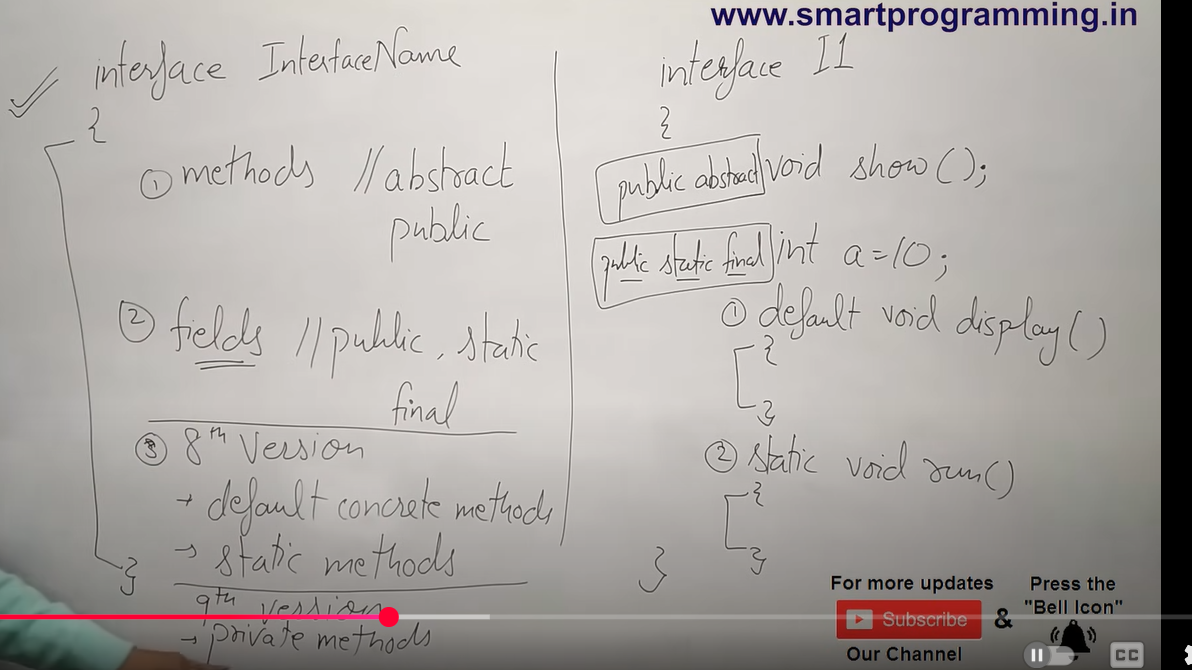 www.smartprogramming.in
interface InterfaceName
{
① methods // abstract
public
② fields // public, static
final
③ 8th Version
→ default concrete methods
→ static methods
}
9th version
→ private methods
interface I1
{
public abstract void show();
public static final int a=10;
① default void display()
{
}
② static void run()
{
}
}
For more updates
Subscribe
Our Channel
&
Press the
"Bell Icon"
CC